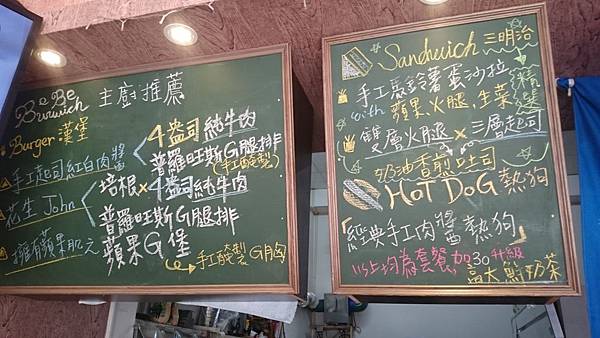 BeBe
Burwich 主廚推薦
Burger 漢堡
手工起司紅白肉醬
4盎司純牛肉
普羅旺斯G腿排
(手工醃製)
花生 John
培根×4盎司純牛肉
普羅旺斯G腿排
擁有蘋果肌
蘋果G堡
手工醃製G胸
Sandwich 三明治
手工馬鈴薯蛋沙拉
with 蘋果.火腿.生菜
精選
雙層火腿×三層起司
奶油香煎吐司
HOT DOG 熱狗
『經典手工肉醬熱狗
以上均為套餐,加30升級
高大鮮奶茶